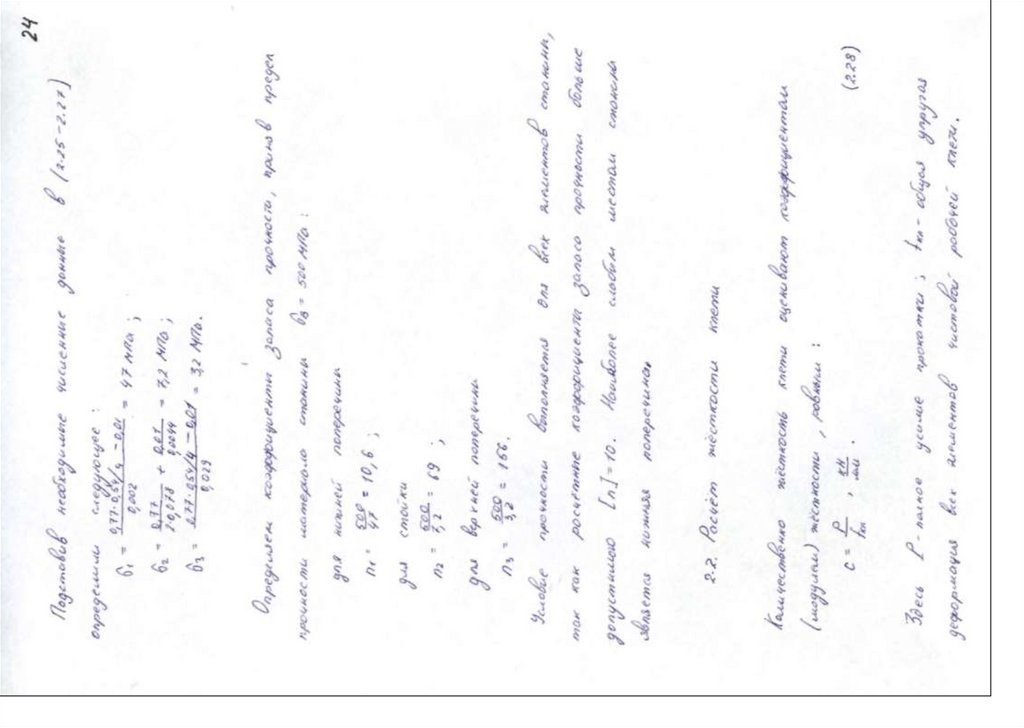 24
Подставив необходимые численные данные в (2.25-2.27)
определили следующее:
σ₁ = (0,77·0,54/4 - 0,01)/0,002 = 47 МПа;
σ₂ = 0,77/(2·0,078) + 0,01/0,0044 = 7,2 МПа;
σ₃ = (0,77·0,54/4 - 0,01)/0,029 = 3,2 МПа.
Определяем коэффициенты запаса прочности, приняв предел
прочности материала станины σв = 500 МПа:
для нижней поперечины
n₁ = 500/47 = 10,6;
для стойки
n₂ = 500/7,2 = 69;
для верхней поперечины
n₃ = 500/3,2 = 156.
Условие прочности выполняется для всех элементов станины,
так как расчетные коэффициента запаса прочности больше
допустимого [n]=10. Наиболее слабым местом станины
является нижняя поперечина
2.2. Расчёт жёсткости клети
Количественно жёсткость клети оценивают коэффициентам
(модулем) жёсткости, равным:
c = P/fкл, кН/мм. (2.28)
Здесь P - полное усилие прокатки; fкл - общая упругая
деформация всех элементов чистовой рабочей клети.